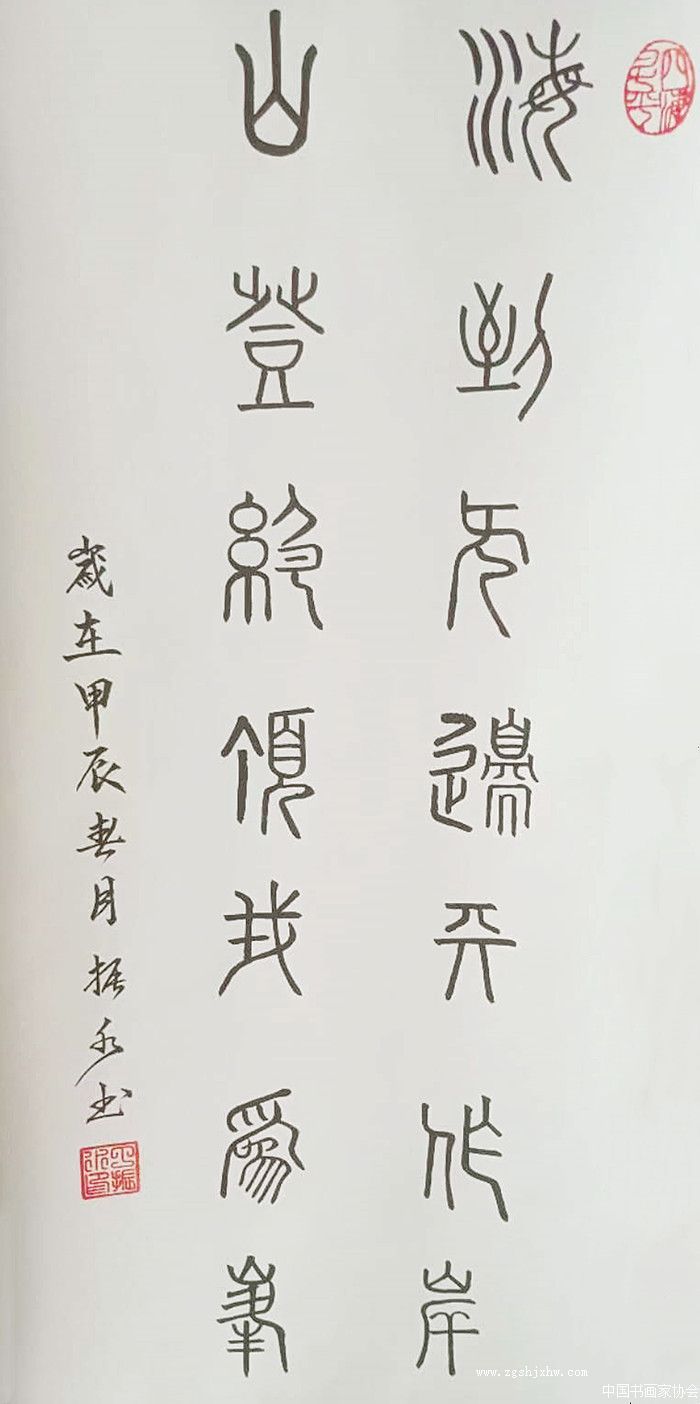 海到无邊天作岸
山登絕頂我爲峯
歲在甲辰春月振永书
www.zgshjxhw.com
中国书画家协会